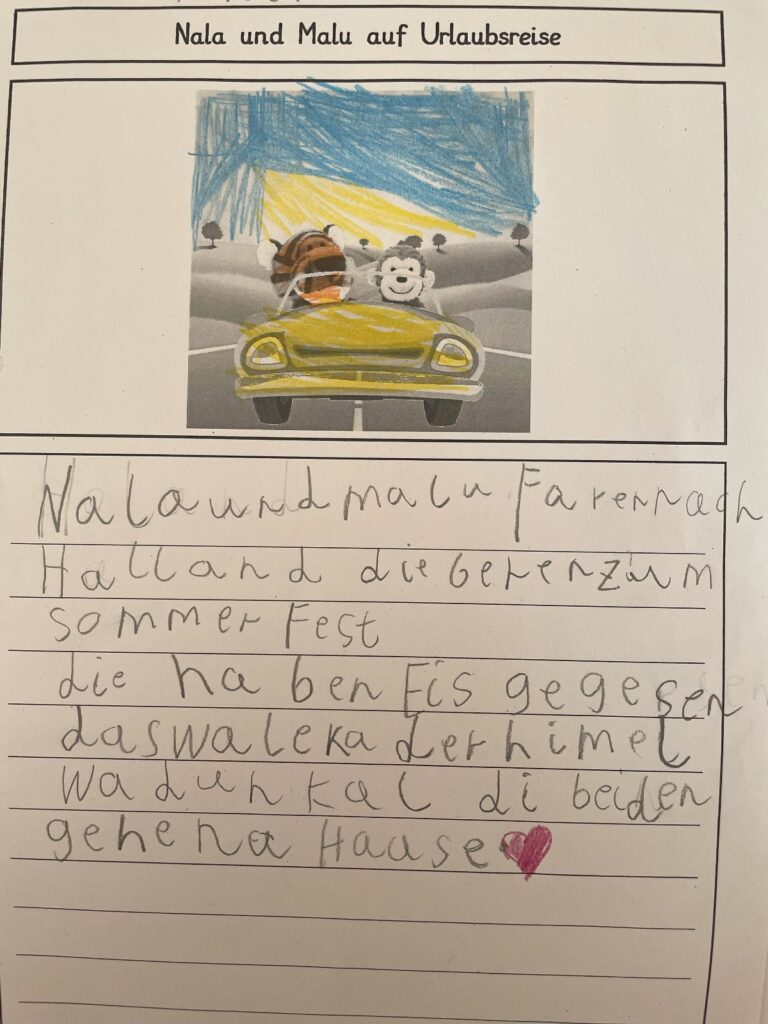 Nala und Malu auf Urlaubsreise
Nala und malu Farennach
Halland die gerenzum
sommer Fest
die haben Eis gegesen
daswaleka derhimel
wa dunkal di beiden
gehe na Hause